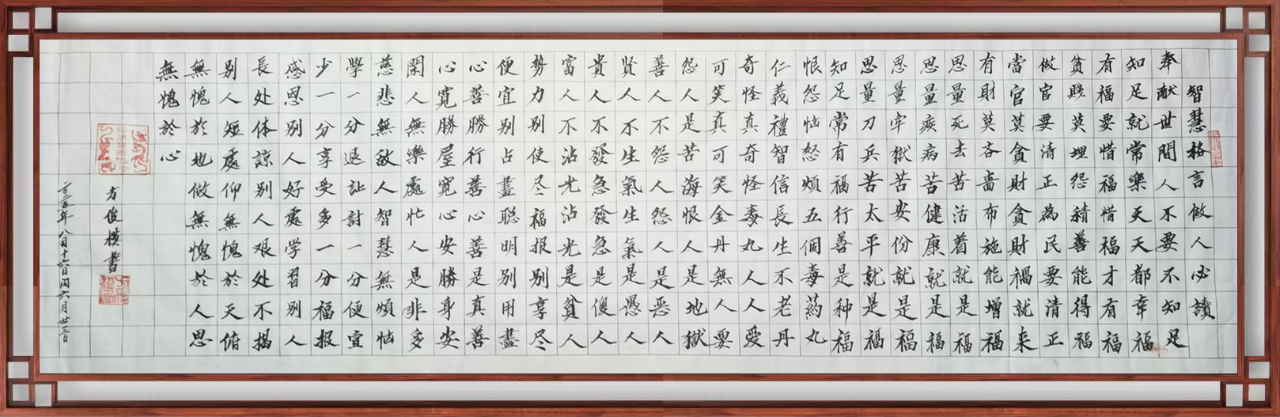 智慧格言做人必讀
奉献世間人不要不知足
知足就常樂天天都幸福
有福要惜福惜福才有福
貧賤莫埋怨積善能得福
做官要清正為民要清正
當官莫貪財貪財禍就来
有財莫吝嗇布施能增福
思量死去苦活着就是福
思量疾病苦健康就是福
思量牢獄苦安份就是福
思量刀兵苦太平就是福
知足常有福行善是种福
恨怨恼怒煩五個毒药丸
仁義禮智信長生不老丹
奇怪真奇怪毒丸人人愛
可笑真可笑金丹無人要
怨人是苦海恨人是地獄
善人不怨人怨人是恶人
贤人不生氣生氣是愚人
貴人不發急發急是傻人
富人不沾光沾光是貧人
势力别使尽福报别享尽
便宜别占盡聪明别用盡
心善勝行善心善是真善
心寬勝屋寬心安勝身安
閑人無樂處忙人是非多
慈悲無敌人智慧無煩恼
學一分退让討一分便宜
少一分享受多一分福报
感恩别人好處學習别人
長处体諒别人艰处不揭
别人短處仰無愧於天俯
無愧於地做無愧於人思
無愧於心
方俊横書
年八月十六日闰六月廿三日